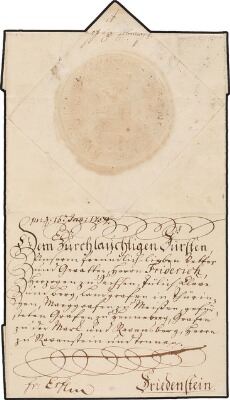 Dem Durchlauchtigen Fürsten
Unserm freundlich lieben Vetter
und Gevatter, Herrn Friderich,
Herzogen zu Sachsen, Jülich, Cleve
und Berg, Landgrafen in Thürin-
gen, Marggrafen zu Meißen, gefür-
steten Grafen zu Henneberg, Grafen
zu der Marck und Ravensberg, Herrn
zu Ravenstein und Tonna
Friedenstein.